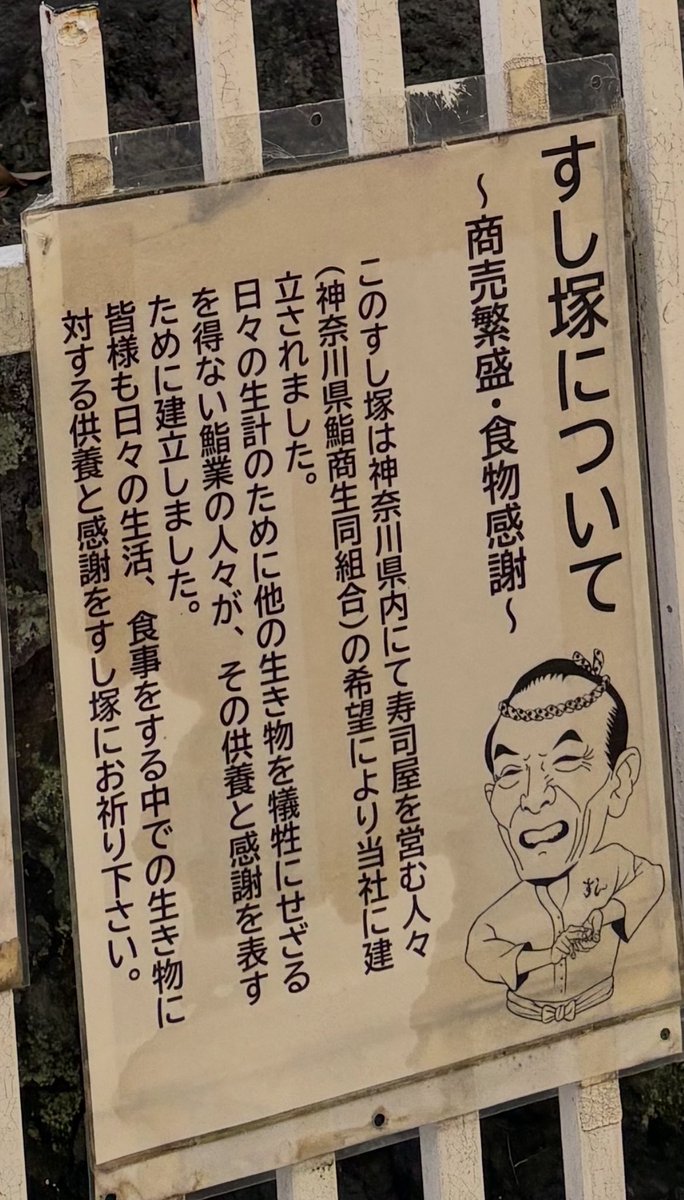 すし塚について
～商売繁盛・食物感謝～
このすし塚は神奈川県内にて寿司屋を営む人々
（神奈川県鮨商生同組合）の希望により当社に建
立されました。
日々の生計のために他の生き物を犠牲にせざる
を得ない鮨業の人々が、その供養と感謝を表す
ために建立しました。
皆様も日々の生活、食事をする中での生き物に
対する供養と感謝をすし塚にお祈り下さい。
すし